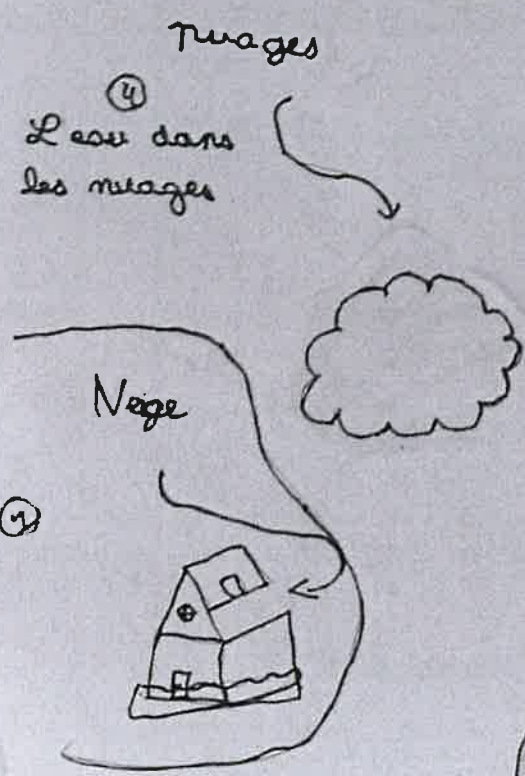 nuages
4
L'eau dans
les nuages
Neige
1